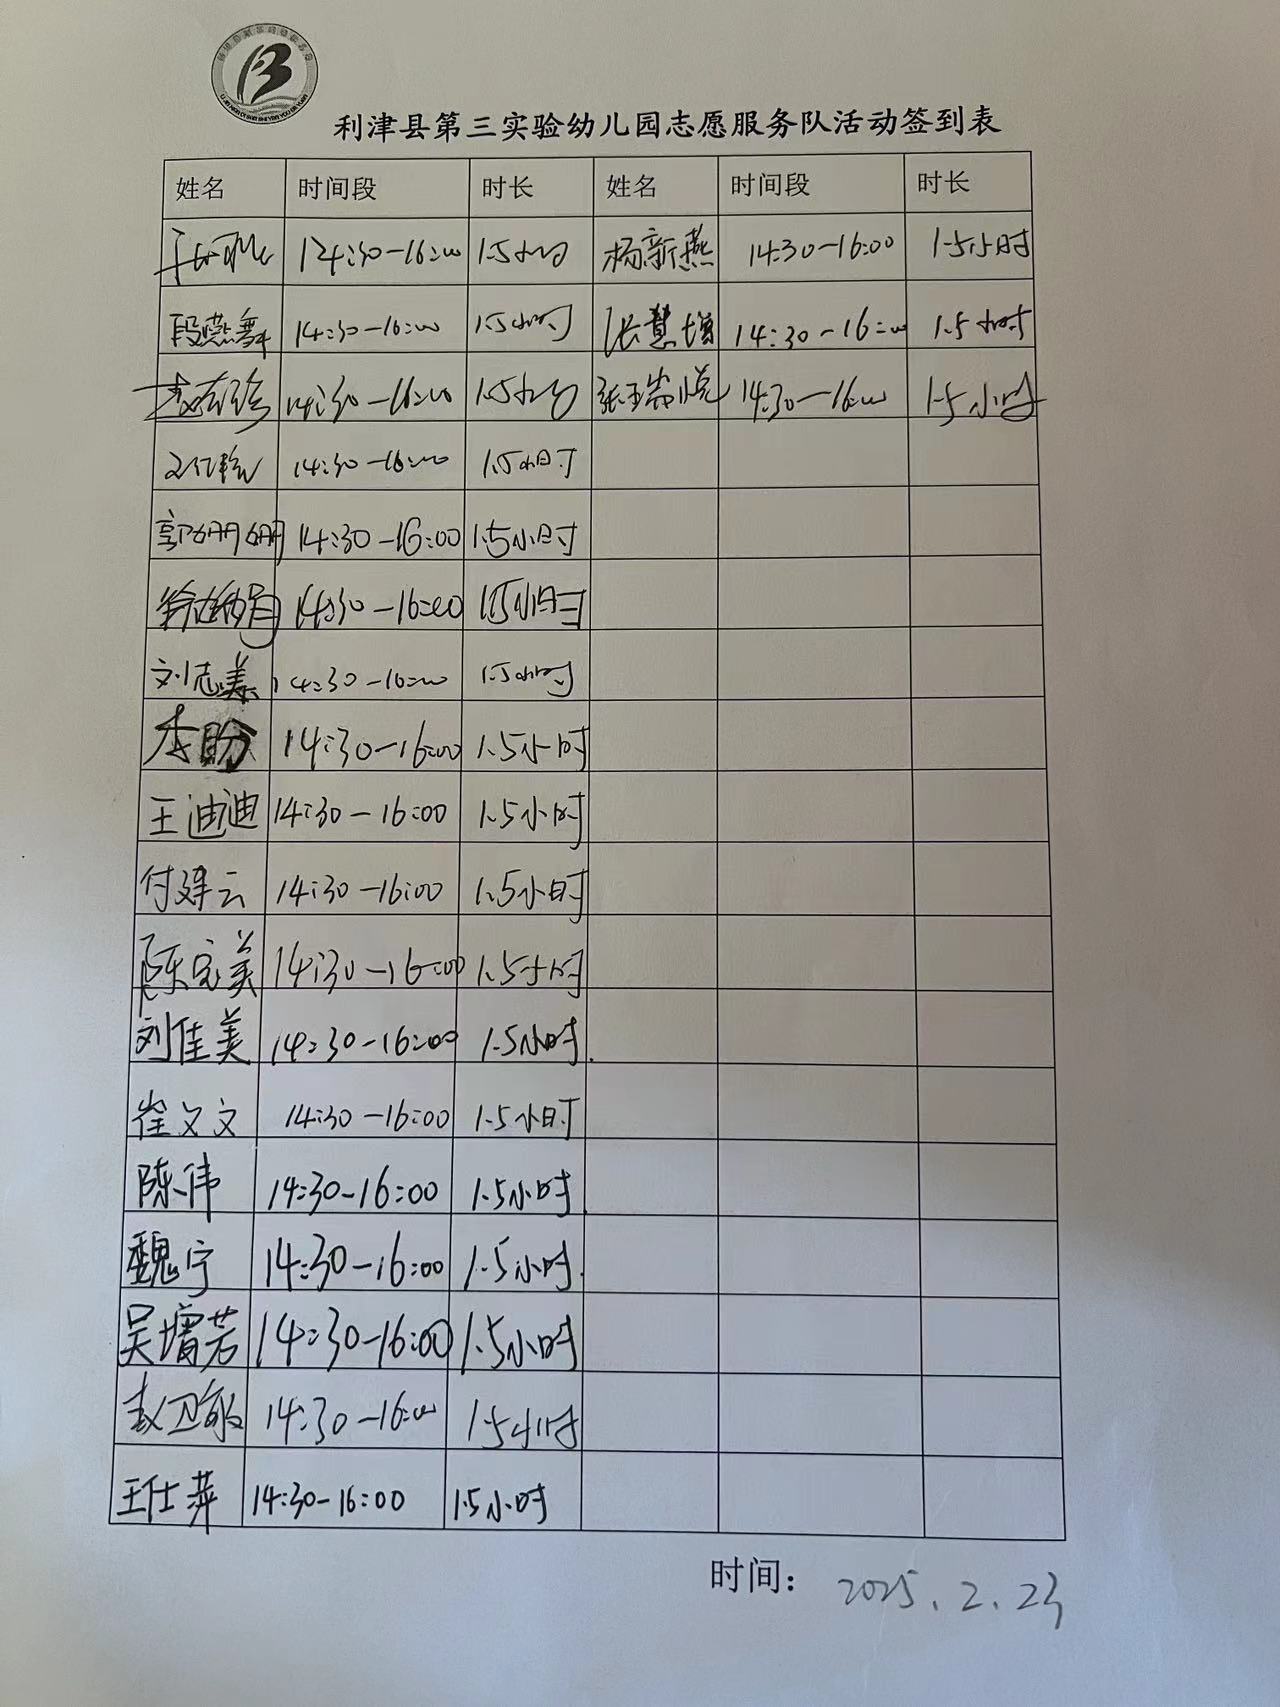 利津县第三实验幼儿园志愿服务队活动签到表
姓名 时间段 时长 姓名 时间段 时长
14:30-16:00 1.5小时 杨新燕 14:30-16:00 1.5小时
段燕舞 14:30-16:00 1.5小时 张慧增 14:30-16:00 1.5小时
14:30-16:00 1.5小时 14:30-16:00 1.5小时
14:30-16:00 1.5小时
郭姗姗 14:30-16:00 1.5小时
14:30-16:00 1.5小时
刘志美 14:30-16:00 1.5小时
李盼 14:30-16:00 1.5小时
王迪迪 14:30-16:00 1.5小时
付建云 14:30-16:00 1.5小时
陈完美 14:30-16:00 1.5小时
刘佳美 14:30-16:00 1.5小时.
崔文文 14:30-16:00 1.5小时
陈伟 14:30-16:00 1.5小时
魏宁 14:30-16:00 1.5小时.
吴增芳 14:30-16:00 1.5小时
赵卫敏 14:30-16:00 1.5小时
王仕萍 14:30-16:00 1.5小时
时间： 2025.2.23